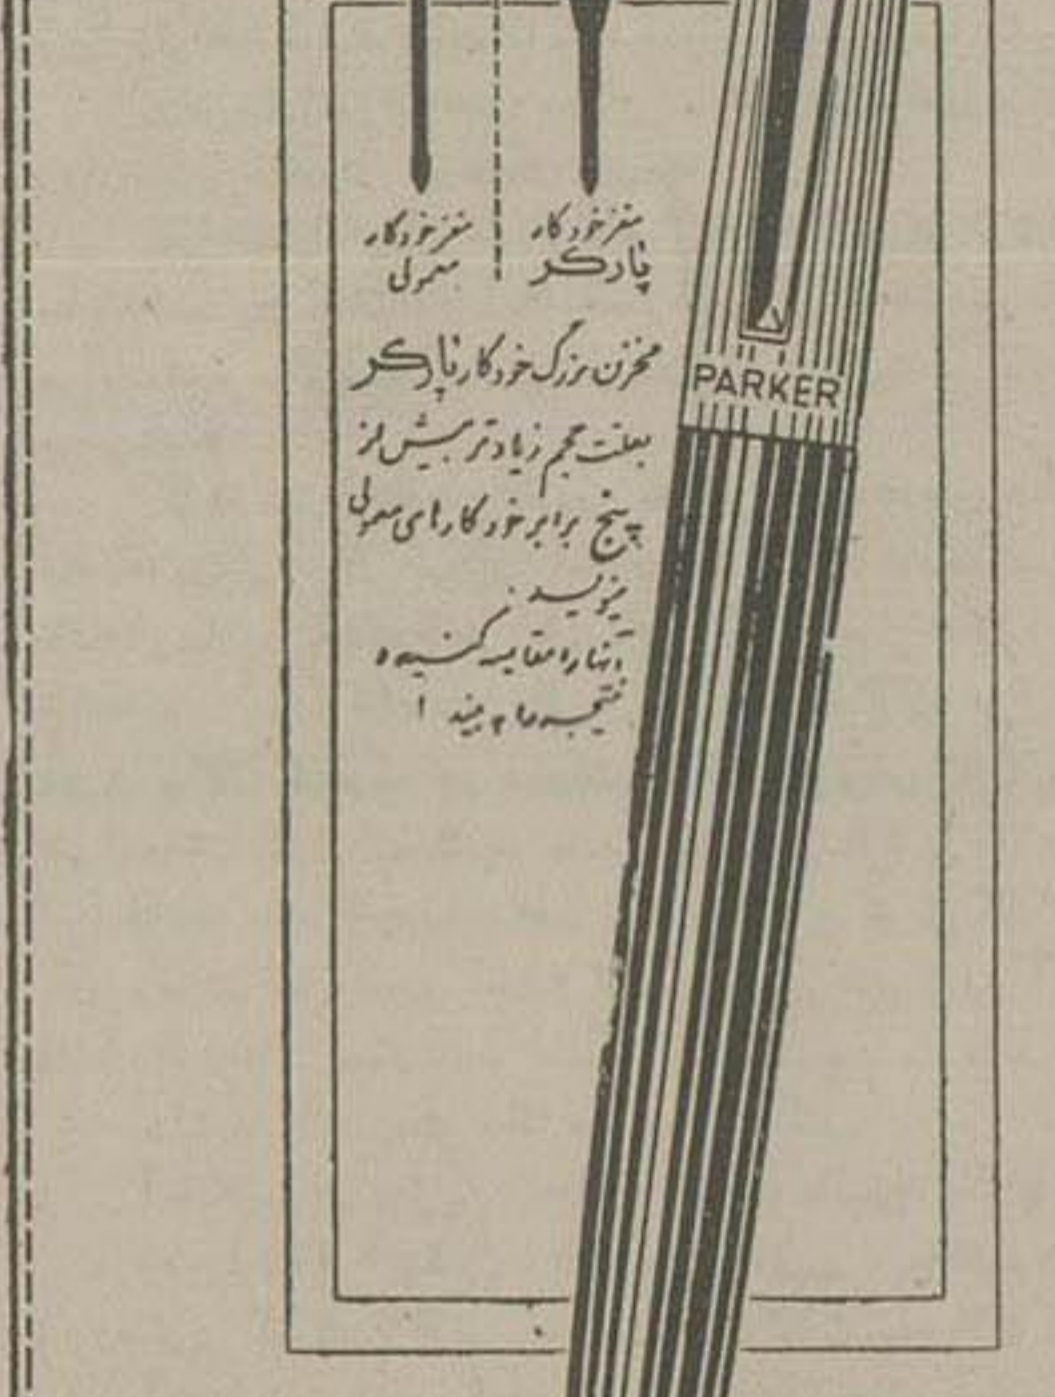 مغز خودکار
پارکر
مغز خودکار
معمولی
مخزن بزرگ خودکار پارکر
بعلت حجم زیادتر بیش از
پنج برابر خودکارهای معمولی
مینویسد.
آنها را مقایسه کنید و
نتیجه را به بینید!
PARKER